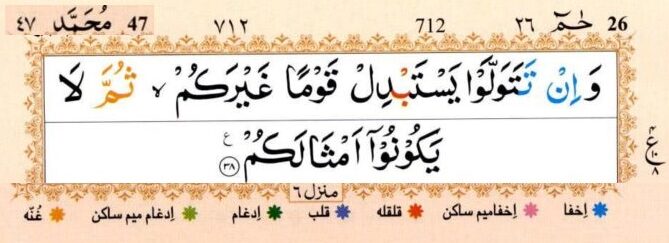 ٤٧ مُحَمَّد 47 ٧١٢ 712 ٢٦ حٰمٓ 26
وَاِنْ تَتَوَلَّوْا يَسْتَبْدِلْ قَوْمًا غَيْرَكُمْ ۙ ثُمَّ لَا
يَكُوْنُوْٓا اَمْثَالَكُمْ ﴿٣٨﴾ ع
٤ ع ١٠ ٨
منزل ٦
اِخفا اِخفامیم ساکن قلقله قلب اِدغام اِدغام میم ساکن غُنّه